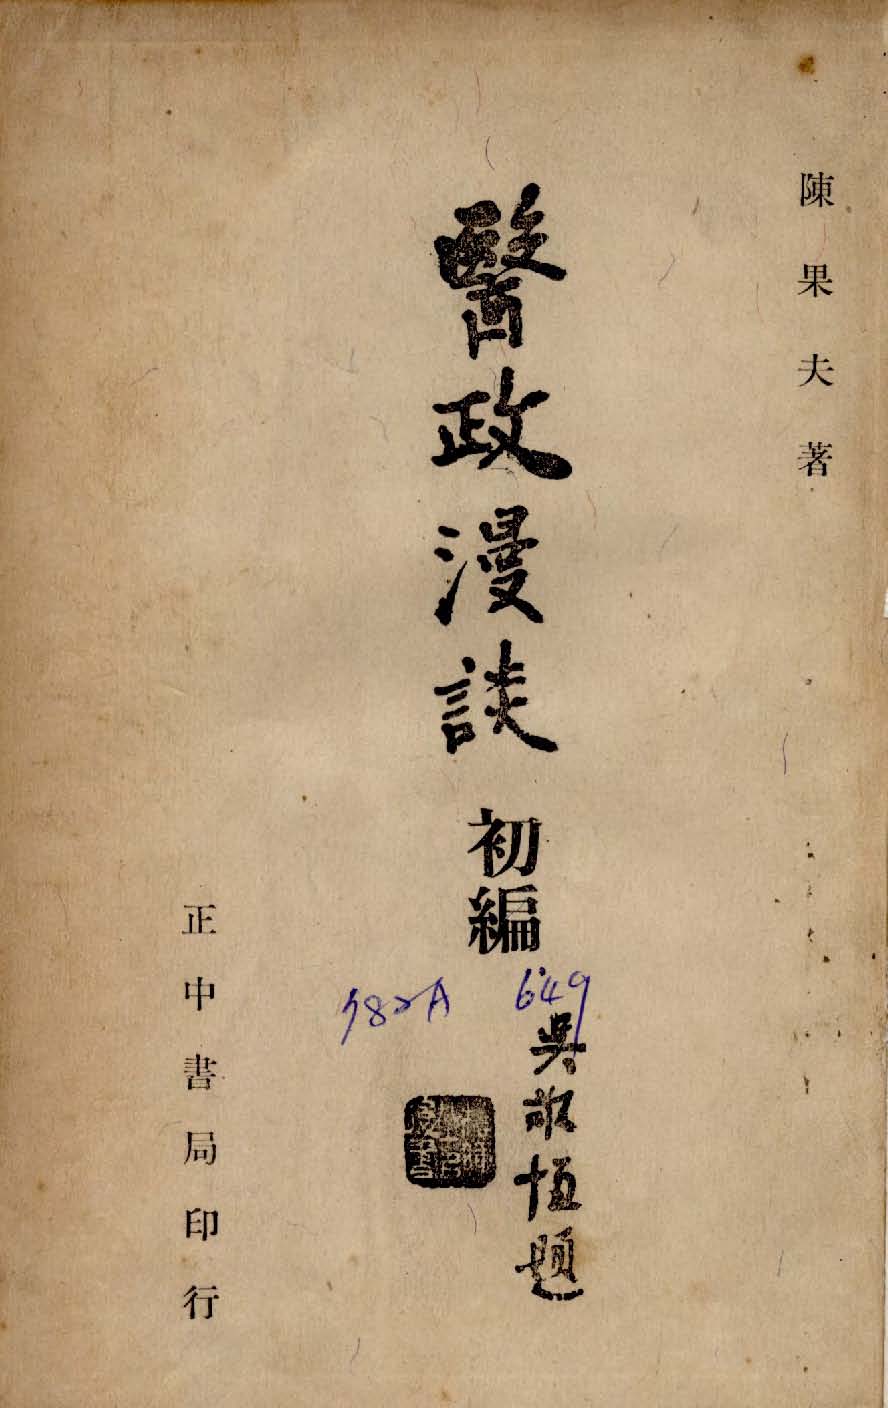 陳果夫著
醫政漫談 初編
吳敬恆題
649
正中書局印行